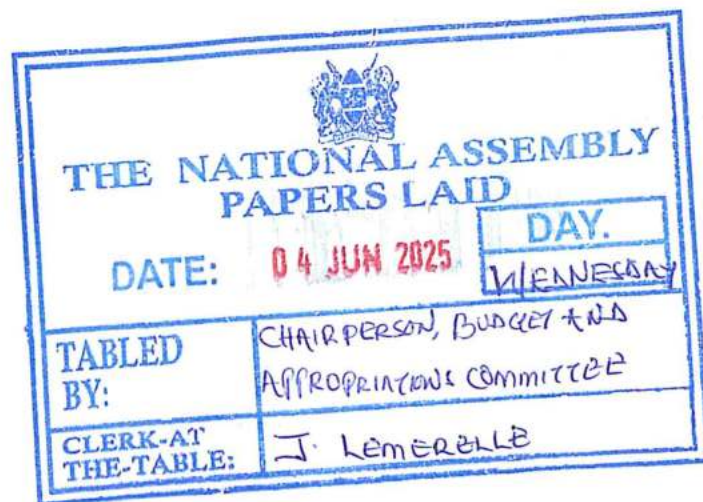 THE NATIONAL ASSEMBLY
PAPERS LAID
DATE: 04 JUN 2025
DAY.
WENNESDAY
TABLED BY:
CHAIRPERSON, BUDGET AND
APPROPRIATIONS COMMITTEE
CLERK-AT
THE-TABLE:
J. LEMERELLE